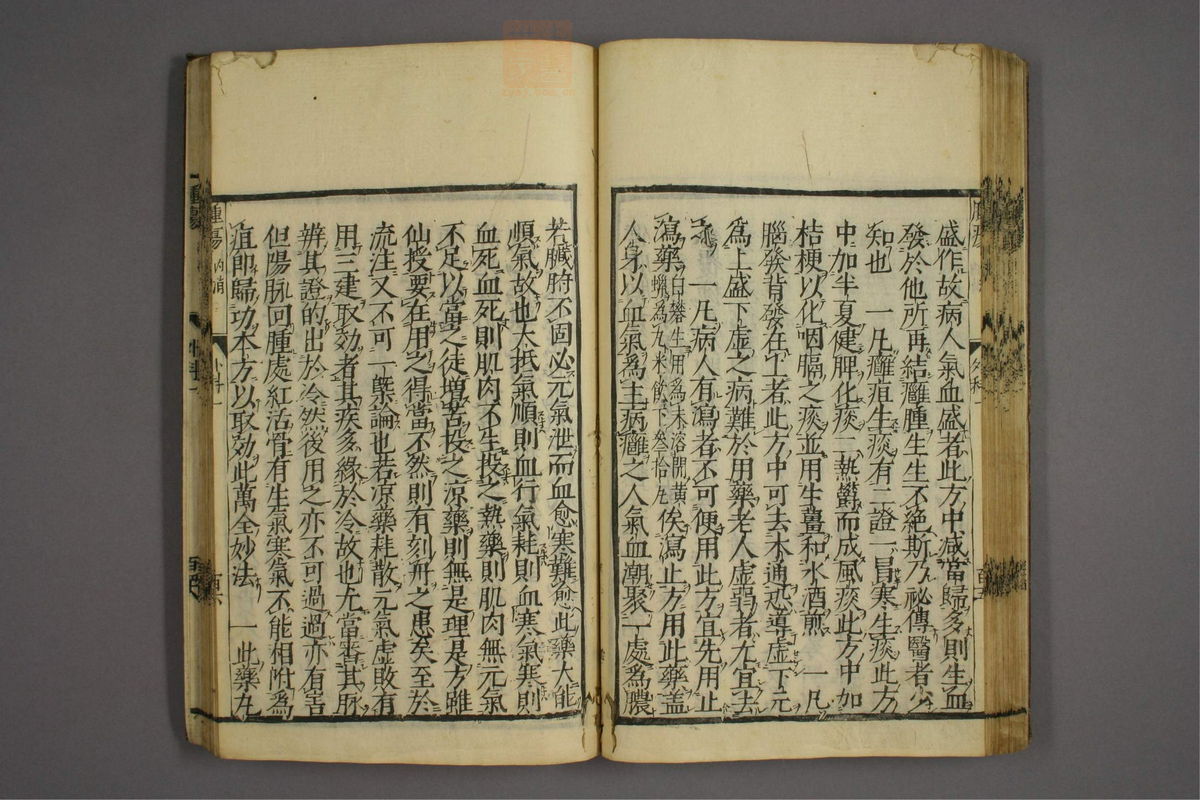 盛作故病人氣血盛者此方中减當歸多則生血
發於他所再結癰腫生生不絶斯乃祕傳醫者少
知也 一凡癰疽生痰有二證一冒寒生痰此方
中加半夏健脾化痰二熱欝而成風痰此方中加
桔梗以化咽膈之痰並用生薑和水酒煎 一凡
腦發背發在上者此方中可去木通恐導虚下元
爲上盛下虚之病難於用藥老人虚弱者尤宜去
一凡病人有瀉者不可便用此方宜先用止
瀉藥白礬生用爲末溶開黄蠟爲丸米飲下叁拾丸俟瀉止方用此藥盖
人身以血氣爲主病癰之人氣血潮聚一處爲膿
若臟腑不固必元氣泄而血愈寒難愈此藥大能
順氣故也大抵氣順則血行氣耗則血寒氣寒則
血死血死則肌肉不生投之熱藥則肌肉無元氣
不足以當之徒增苦投之凉藥則無是理是方雖
仙授要在用之得當不然則有刻舟之患矣至於
流注又不可一槩論也若凉藥耗散元氣虚敗有
用三建取効者其疾多縁於冷故也尤當審其脉
辨其證的出於冷然後用之亦不可過過亦有害
但陽脉回腫處紅活骨有生氣寒氣不能相附爲
疽即歸功本方以取効此萬全妙法 一此藥九
腫瘍 内消 外科一